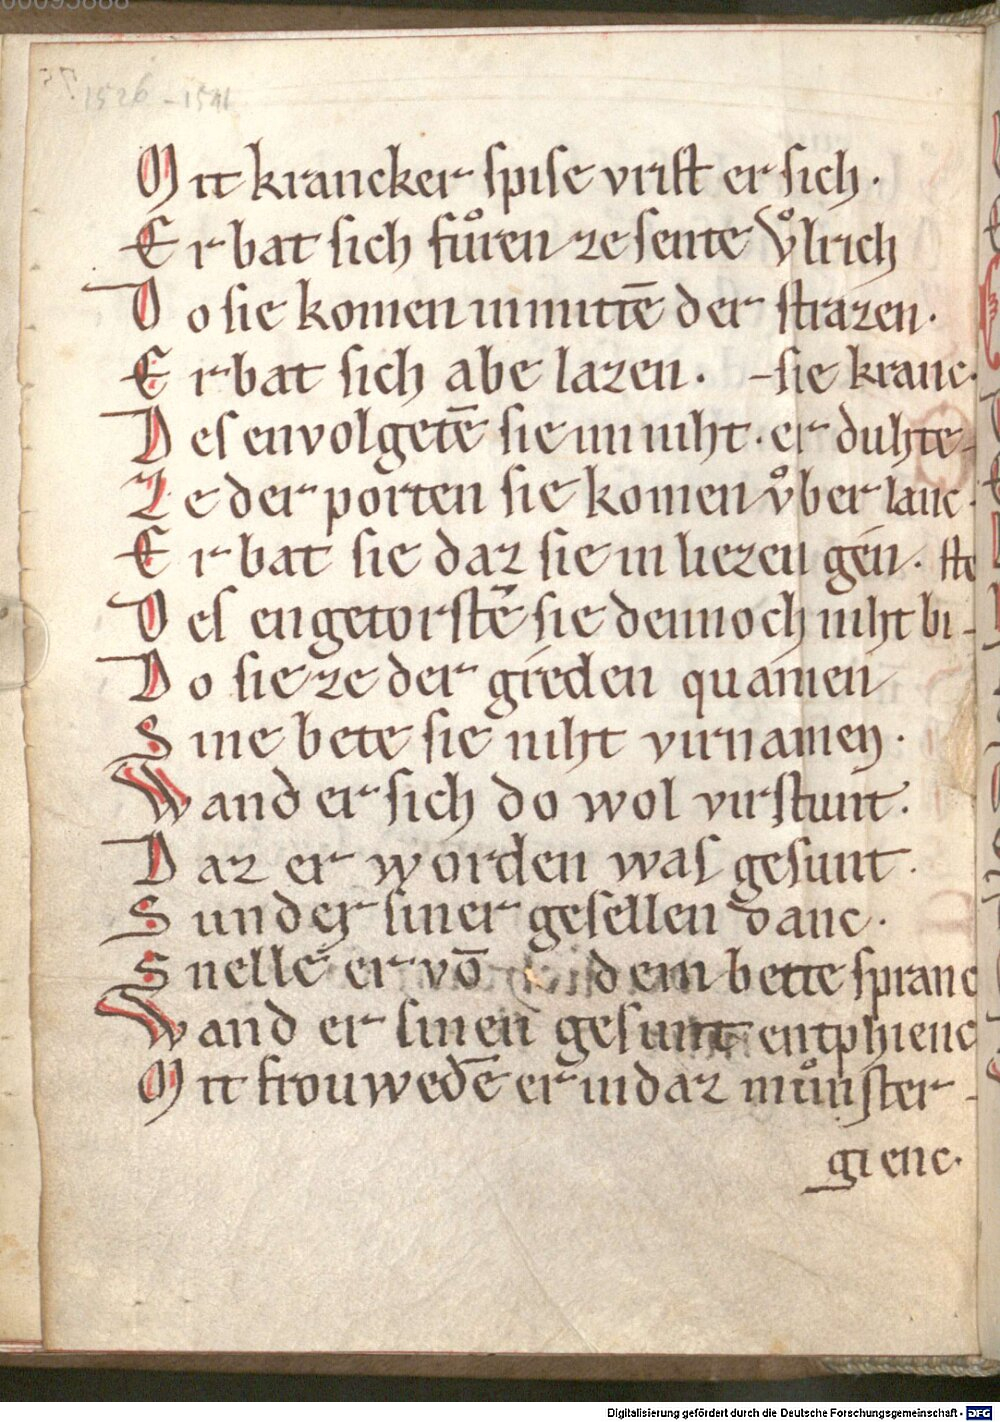 00095888
1526 - 1541
Mit krancker spise vrist er sich.
Er bat sich fuͦren ze sente Vͦlrich
Do sie komen inmittē der strazen.
Er bat sich abe lazen. –sie kranc.
Des envolgetē sie im niht. er duhte-
Ze der porten sie komen vͦber lanc.
Er bat sie daz sie in liezen gen. ste
Des engetorstē sie dennoch niht bi-
Do sie ze der greden quamen
Sine bete sie niht virnamen.
Wand er sich do wol virstunt.
Daz er worden was gesunt.
Sunder siner gesellen danc.
Snelle er vō dem bette spranc
Wand er sinen gesunt entphienc
Mit frouwedē er in daz muͦnster -
gienc.
Digitalisierung gefördert durch die Deutsche Forschungsgemeinschaft - DFG